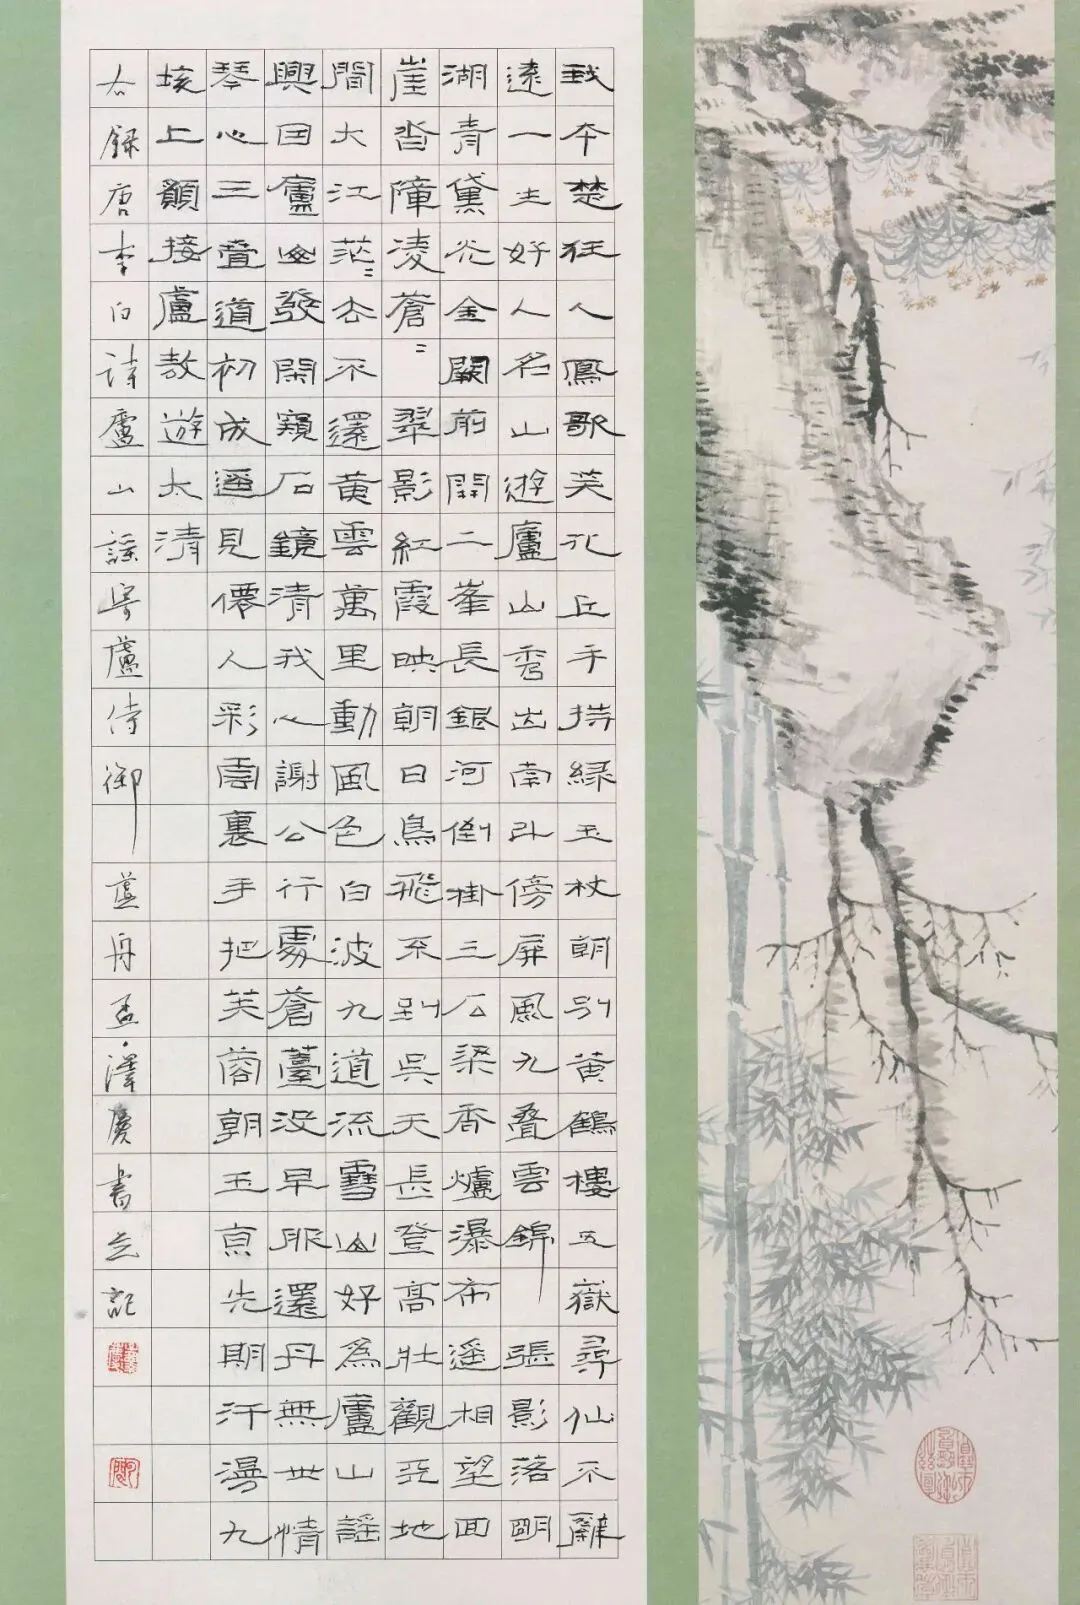 我本楚狂人鳳歌笑孔丘手持綠玉杖朝別黃鶴樓五嶽尋仙不辭
遠一生好入名山遊廬山秀出南斗傍屏風九疊雲錦張影落明
湖青黛光金闕前開二峯長銀河倒掛三石梁香爐瀑布遙相望回
崖沓障凌蒼〻翠影紅霞映朝日鳥飛不到吳天長登高壯觀天地
間大江茫〻去不還黃雲萬里動風色白波九道流雪山好為廬山謠
興因廬山發閑窺石鏡清我心謝公行處蒼薹沒早服還丹無世情
琴心三疊道初成遥見僊人彩雲裏手把芙蓉朝玉京先期汗漫九
垓上願接盧敖遊太清
右錄唐李白詩廬山謠寄廬侍御 孟澤廣書並記